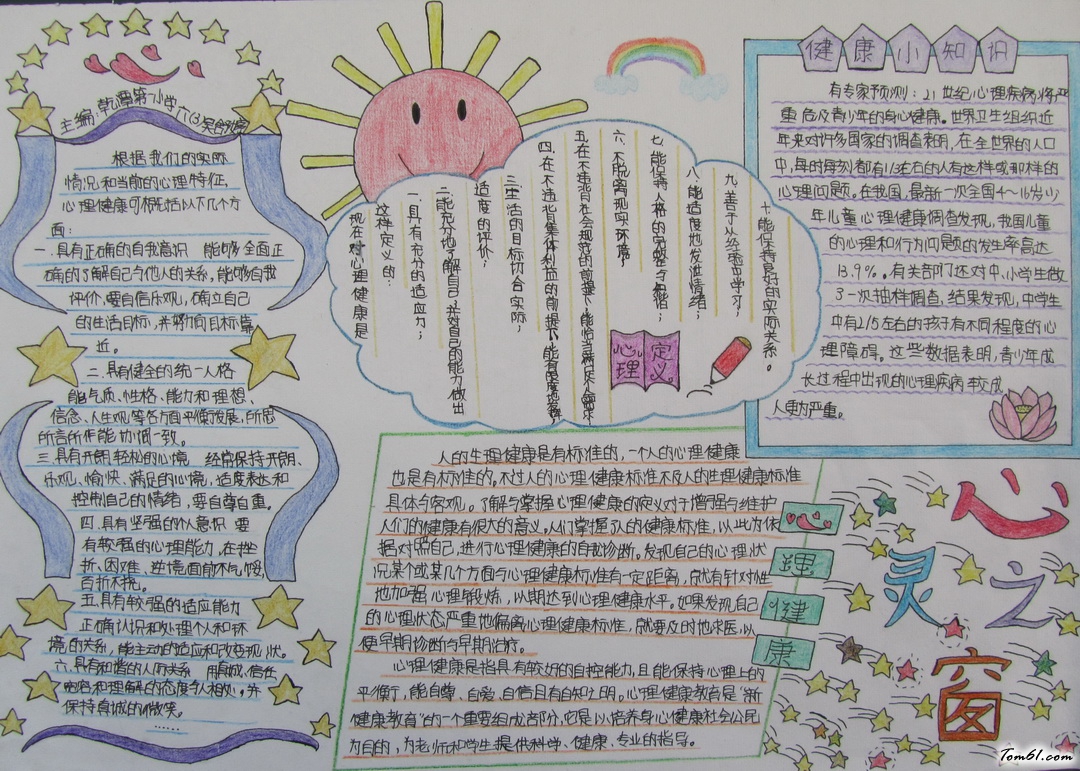 主编:乾潭第一小学
根据我们的实际
情况和当前的心理特征,
心理健康可概括以下几个方
面:
一.具有正确的自我意识 能够全面正
确的了解自己与他人的关系,能够自我
评价,要自信乐观,确立自己
的生活目标,并努力向目标靠
近。
二.具有健全的统一人格
能气质、性格、能力和理想、
信念、人生观等各方面平衡发展,所思
所言所作能协调一致。
三.具有开朗轻松的心境 经常保持开朗、
乐观、愉快、满足的心境,适度表达和
控制自己的情绪,要自尊自重。
四.具有坚强的个人意识 要
有较强的心理能力,在挫
折、困难、逆境面前不气馁,
百折不挠。
五.具有较强的适应能力
正确认识和处理个人和环
境的关系,能主动的适应和改变现状。
六.具有和谐的人际关系 用真诚、信任
和理解的态度与人相处。并
保持真诚的微笑。
……
现在对心理健康是
这样定义的:
一.具有充分的适应力;
二.能充分地了解自己,并对自己的能力做出
适度的评价;
三.生活的目标切合实际;
四.在不违背集体利益的前提下,能有限度地发挥
五.在不违背社会规范的前提下,能恰当满足个人需求
六.不脱离现实环境;
七.能保持人格的完整与和谐;
八.能适度地发泄情绪;
九.善于从经验中学习;
十.能保持良好的实际关系。
心理
定义。
健康小知识
有专家预测:21世纪心理疾病将严
重危及青少年的身心健康。世界卫生组织近
年来对许多国家的调查表明,在全世界的人口
中,每时每刻都有1/3左右的人有这样或那样的
心理问题,在我国,最新一次全国4~16岁少
年儿童心理健康调查发现,我国儿童
的心理和行为问题的发生率高达
13.9%。有关部门还对中,小学生做
了一次抽样调查,结果发现,中学生
中有2/5左右的孩子有不同程度的心
理障碍。这些数据表明,青少年成
长过程中出现的心理疾病较成
人更为严重。
人的生理健康是有标准的,一个人的心理健康
也是有标准的。不过人的心理健康标准不及人的生理健康标准
具体与客观。了解与掌握心理健康的定义对于增强与维护
人们的健康有很大的意义。人们掌握了人的健康标准,以此为依
据对照自己,进行心理健康的自我诊断。发现自己的心理状
况某个或某几个方面与心理健康标准有一定距离,就有针对性
地加强心理锻炼,以期达到心理健康水平。如果发现自己
的心理状态严重地偏离心理健康标准,就要及时地求医,以
便早期诊断与早期治疗。
心理健康是指具有较好的自控能力,且能保持心理上的
平衡,能自尊、自爱、自信且有自知之明。心理健康教育是“新
健康教育”的一个重要组成部分,它是以培养身心健康社会公民
为目的,为老师和学生提供科学、健康、专业的指导。
心
理
健
康
心
灵
之
窗
Tom61.com